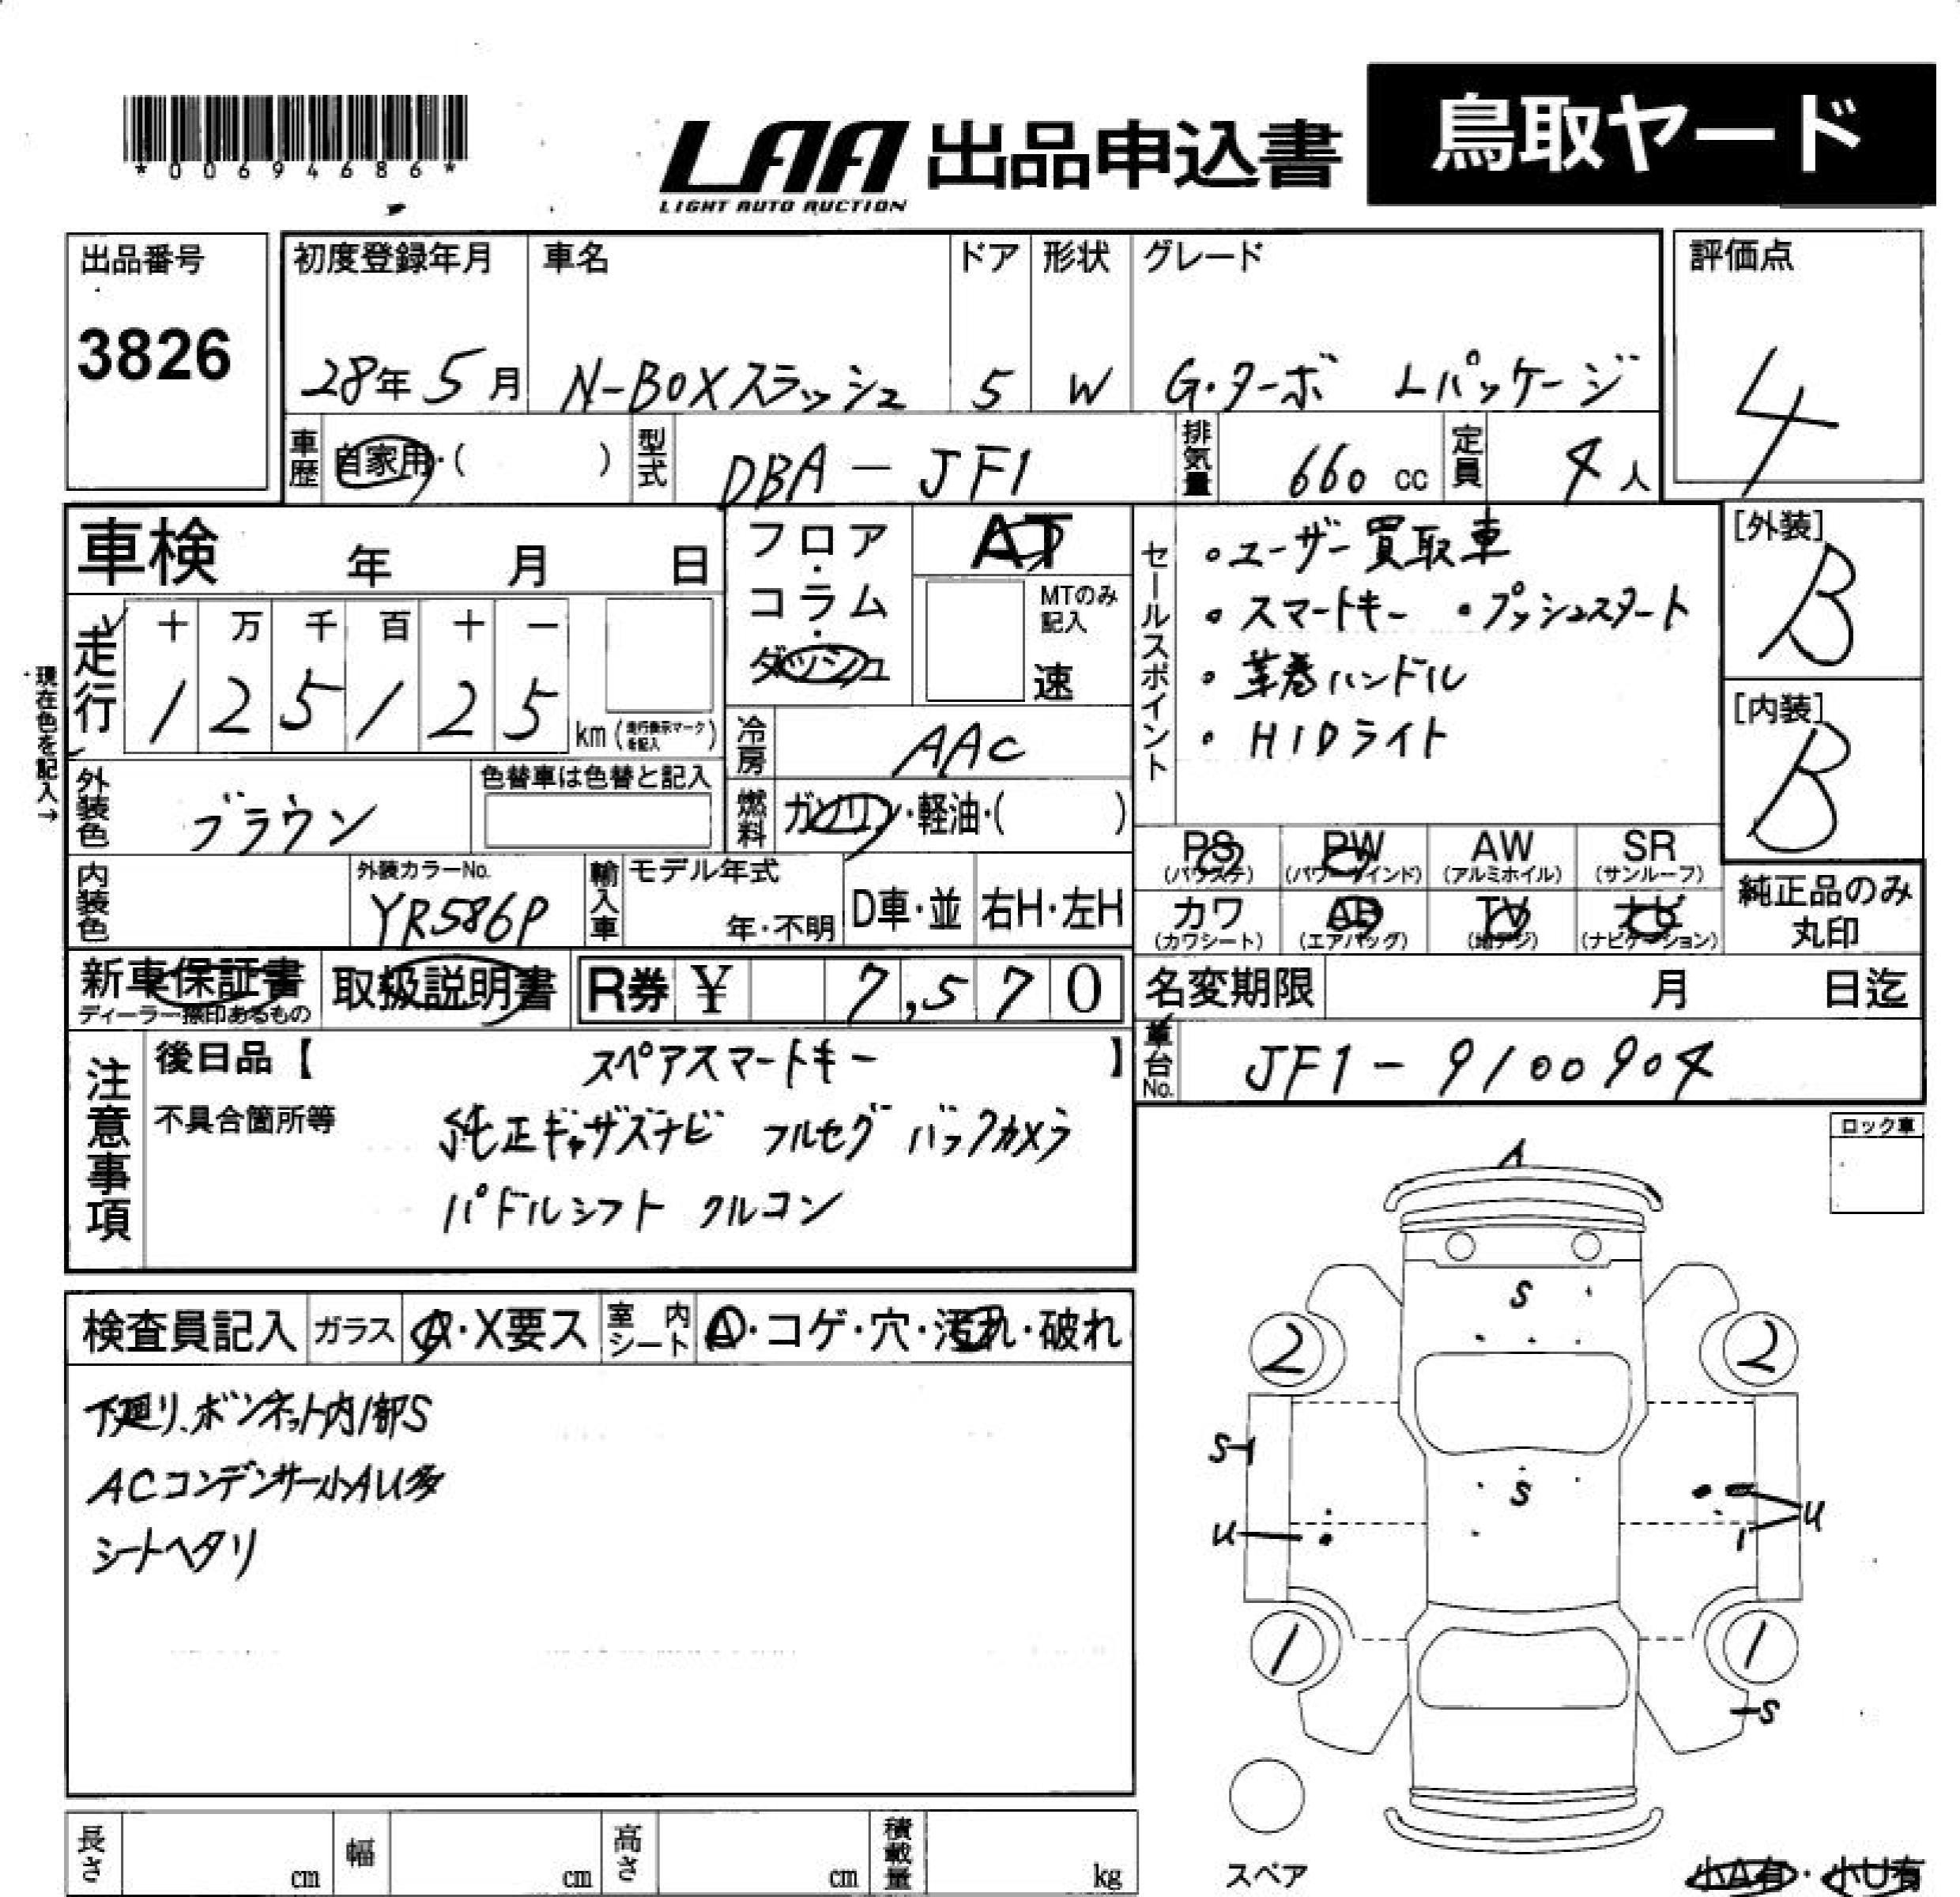 *00694686*
LAA 出品申込書
LIGHT AUTO AUCTION
鳥取ヤード
出品番号
3826
初度登録年月
28年5月
車名
N-BOXスラッシュ
ドア
5
形状
W
グレード
G・ターボ Lパッケージ
評価点
4
車歴
自家用・( )
型式
DBA-JF1
排気量
660 cc
定員
4人
車検 年 月 日
フロア・コラム・ダッシュ
AT
MTのみ記入
速
現在色を記入→
走行
十 万 千 百 十 一
1 2 5 1 2 5 km (走行表示マークを記入)
冷房
AAC
外装色
ブラウン
色替車は色替と記入
燃料
ガソリン・軽油・( )
内装色
外装カラーNo.
YR586P
輸入車
モデル年式
年・不明
D車・並
右H・左H
セールスポイント
・ユーザー買取車
・スマートキー ・プッシュスタート
・革巻ハンドル
・HIDライト
[外装]
B
[内装]
B
PS (パワステ)
PW (パワーウインド)
AW (アルミホイル)
SR (サンルーフ)
カワ (カワシート)
AB (エアバッグ)
TV (地デジ)
ナビ (ナビゲーション)
純正品のみ丸印
新車保証書
ディーラー捺印あるもの
取扱説明書
R券 ¥ 7,570
名変期限 月 日迄
車台No.
JF1-9100904
注意事項
後日品【 スペアスマートキー 】
不具合箇所等
純正ギャザズナビ フルセグ バックカメラ
パドルシフト クルコン
ロック車
検査員記入
ガラス
A・X要ス
室内シート
A・コゲ・穴・汚れ・破れ
下廻り、ボンネット内部S
ACコンデンサー小AU多
シートヘタリ
A
S
2 2
S
S
U
U
1 1
S
スペア
小A有・小U有
長さ cm
幅 cm
高さ cm
積載量 kg